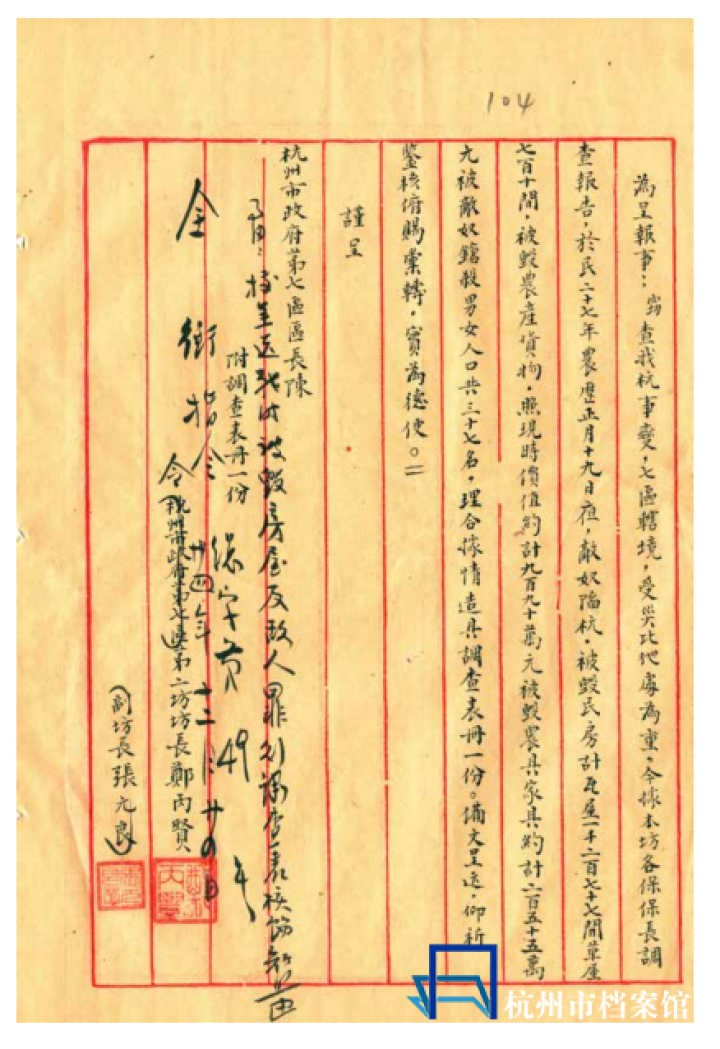 104
為呈報事：窃查我杭事變，七區轄境，受災比他處為重，今據本坊各保保長調
查報告，於民二十七年農歷正月十九日夜，敵奴陷杭，被毀民房計瓦屋一千二百七十七間草屋
七百十間，被毀農產貨物，照現時價值約計九百九十萬元被毀農具家具約計二百五十五萬
元被敵奴鎗殺男女人口共三十七名，理合據情造具調查表冊一份。備文呈送，仰祈
鑒核俯賜棠轉，實為德便。
謹呈
杭州市政府第七區區長陳
附調查表冊一份
被毀房屋及敵人罪行調查表
全銜指令
廿四年十二月廿
杭州市政府第七區第二坊坊長鄭丙賢
副坊長張九良
杭州市档案馆